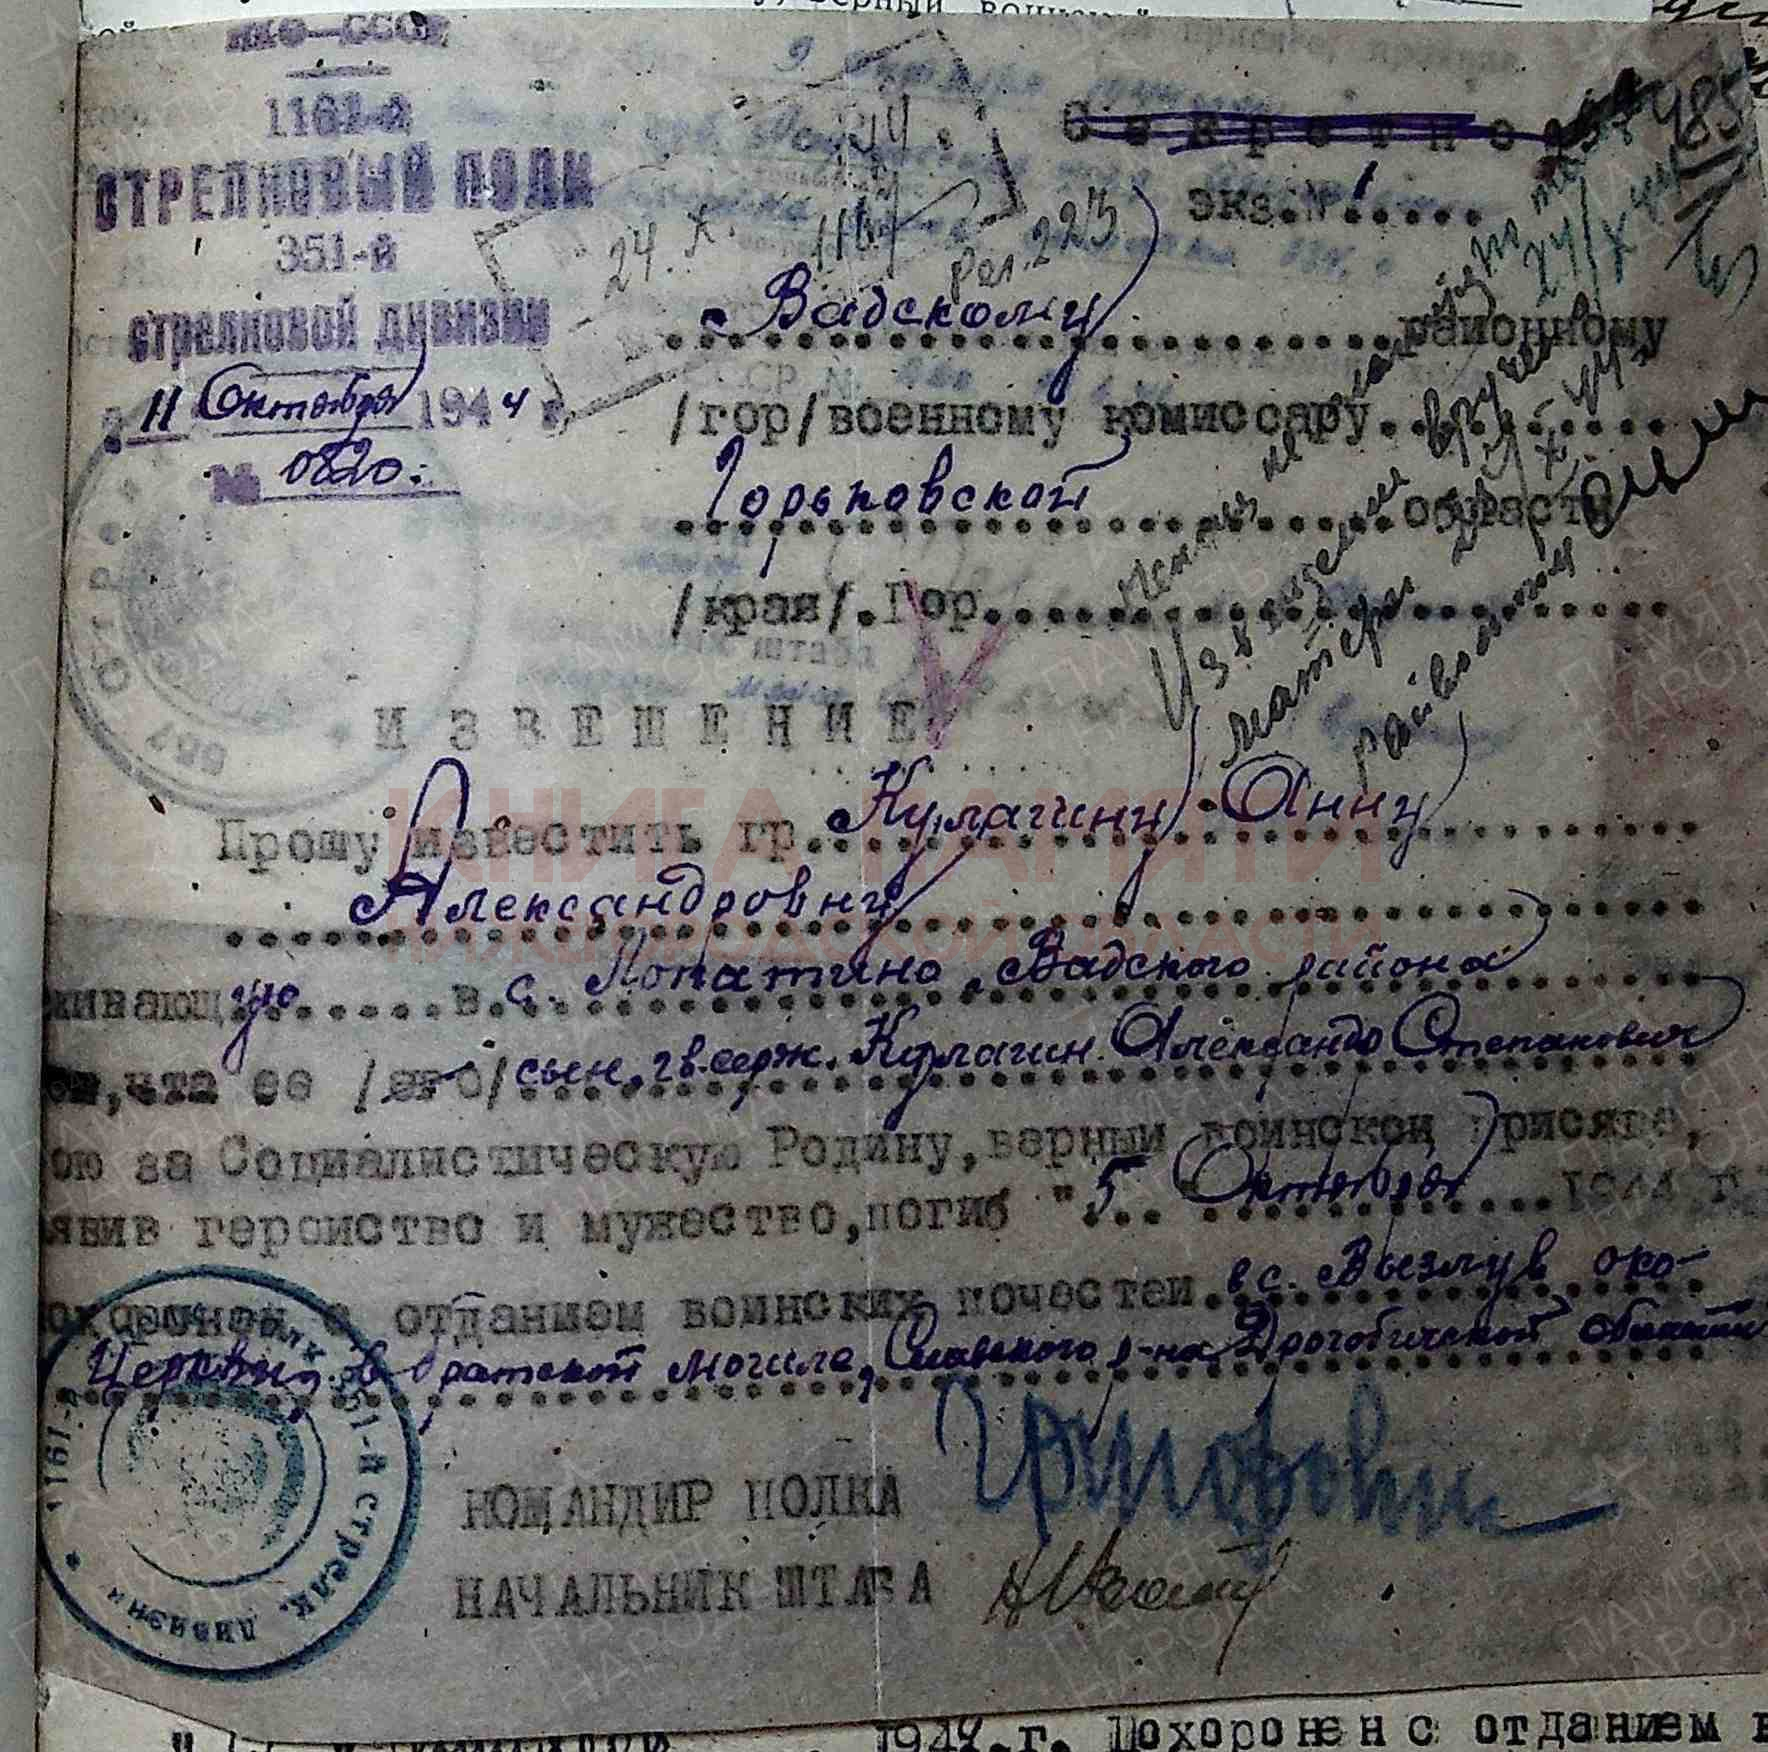 НКО—СССР
1161-й
СТРЕЛКОВЫЙ ПОЛК
351-й
стрелковой дивизии
11 Октября 1944 г.
№ 0820.
Секретно
экз.№ 1.....
24.X.
рол.223
485
24/X 44
Вадскому районному
/гор/военному комиссару
Горьковской области
/края/.Гор.
Извещение вручено
матери 24/X 44 г.
райвоенком
ИЗВЕЩЕНИЕ
Прошу известить гр. Кулагину Анну
Александровну
живающую в с. Лопатино, Вадского района
ом,что ее /его/ сын, гв.серж. Кулагин Александр Степанович
ою за Социалистическую Родину,верный воинской присяге,
явив геройство и мужество,погиб "5 Октября 1944 г.
охоронен с отданием воинских почестей в с. Вызлув око-
Церкви, в братской могиле, Славского р-на, Дрогобичской области
КОМАНДИР ПОЛКА
НАЧАЛЬНИК ШТАБА
1161-й полк 351-й стрелк. дивизии
КНИГА ПАМЯТИ
НИЖЕГОРОДСКОЙ ОБЛАСТИ
ПАМЯТЬ НАРОДА
1944.г. Похоронен с отданием в